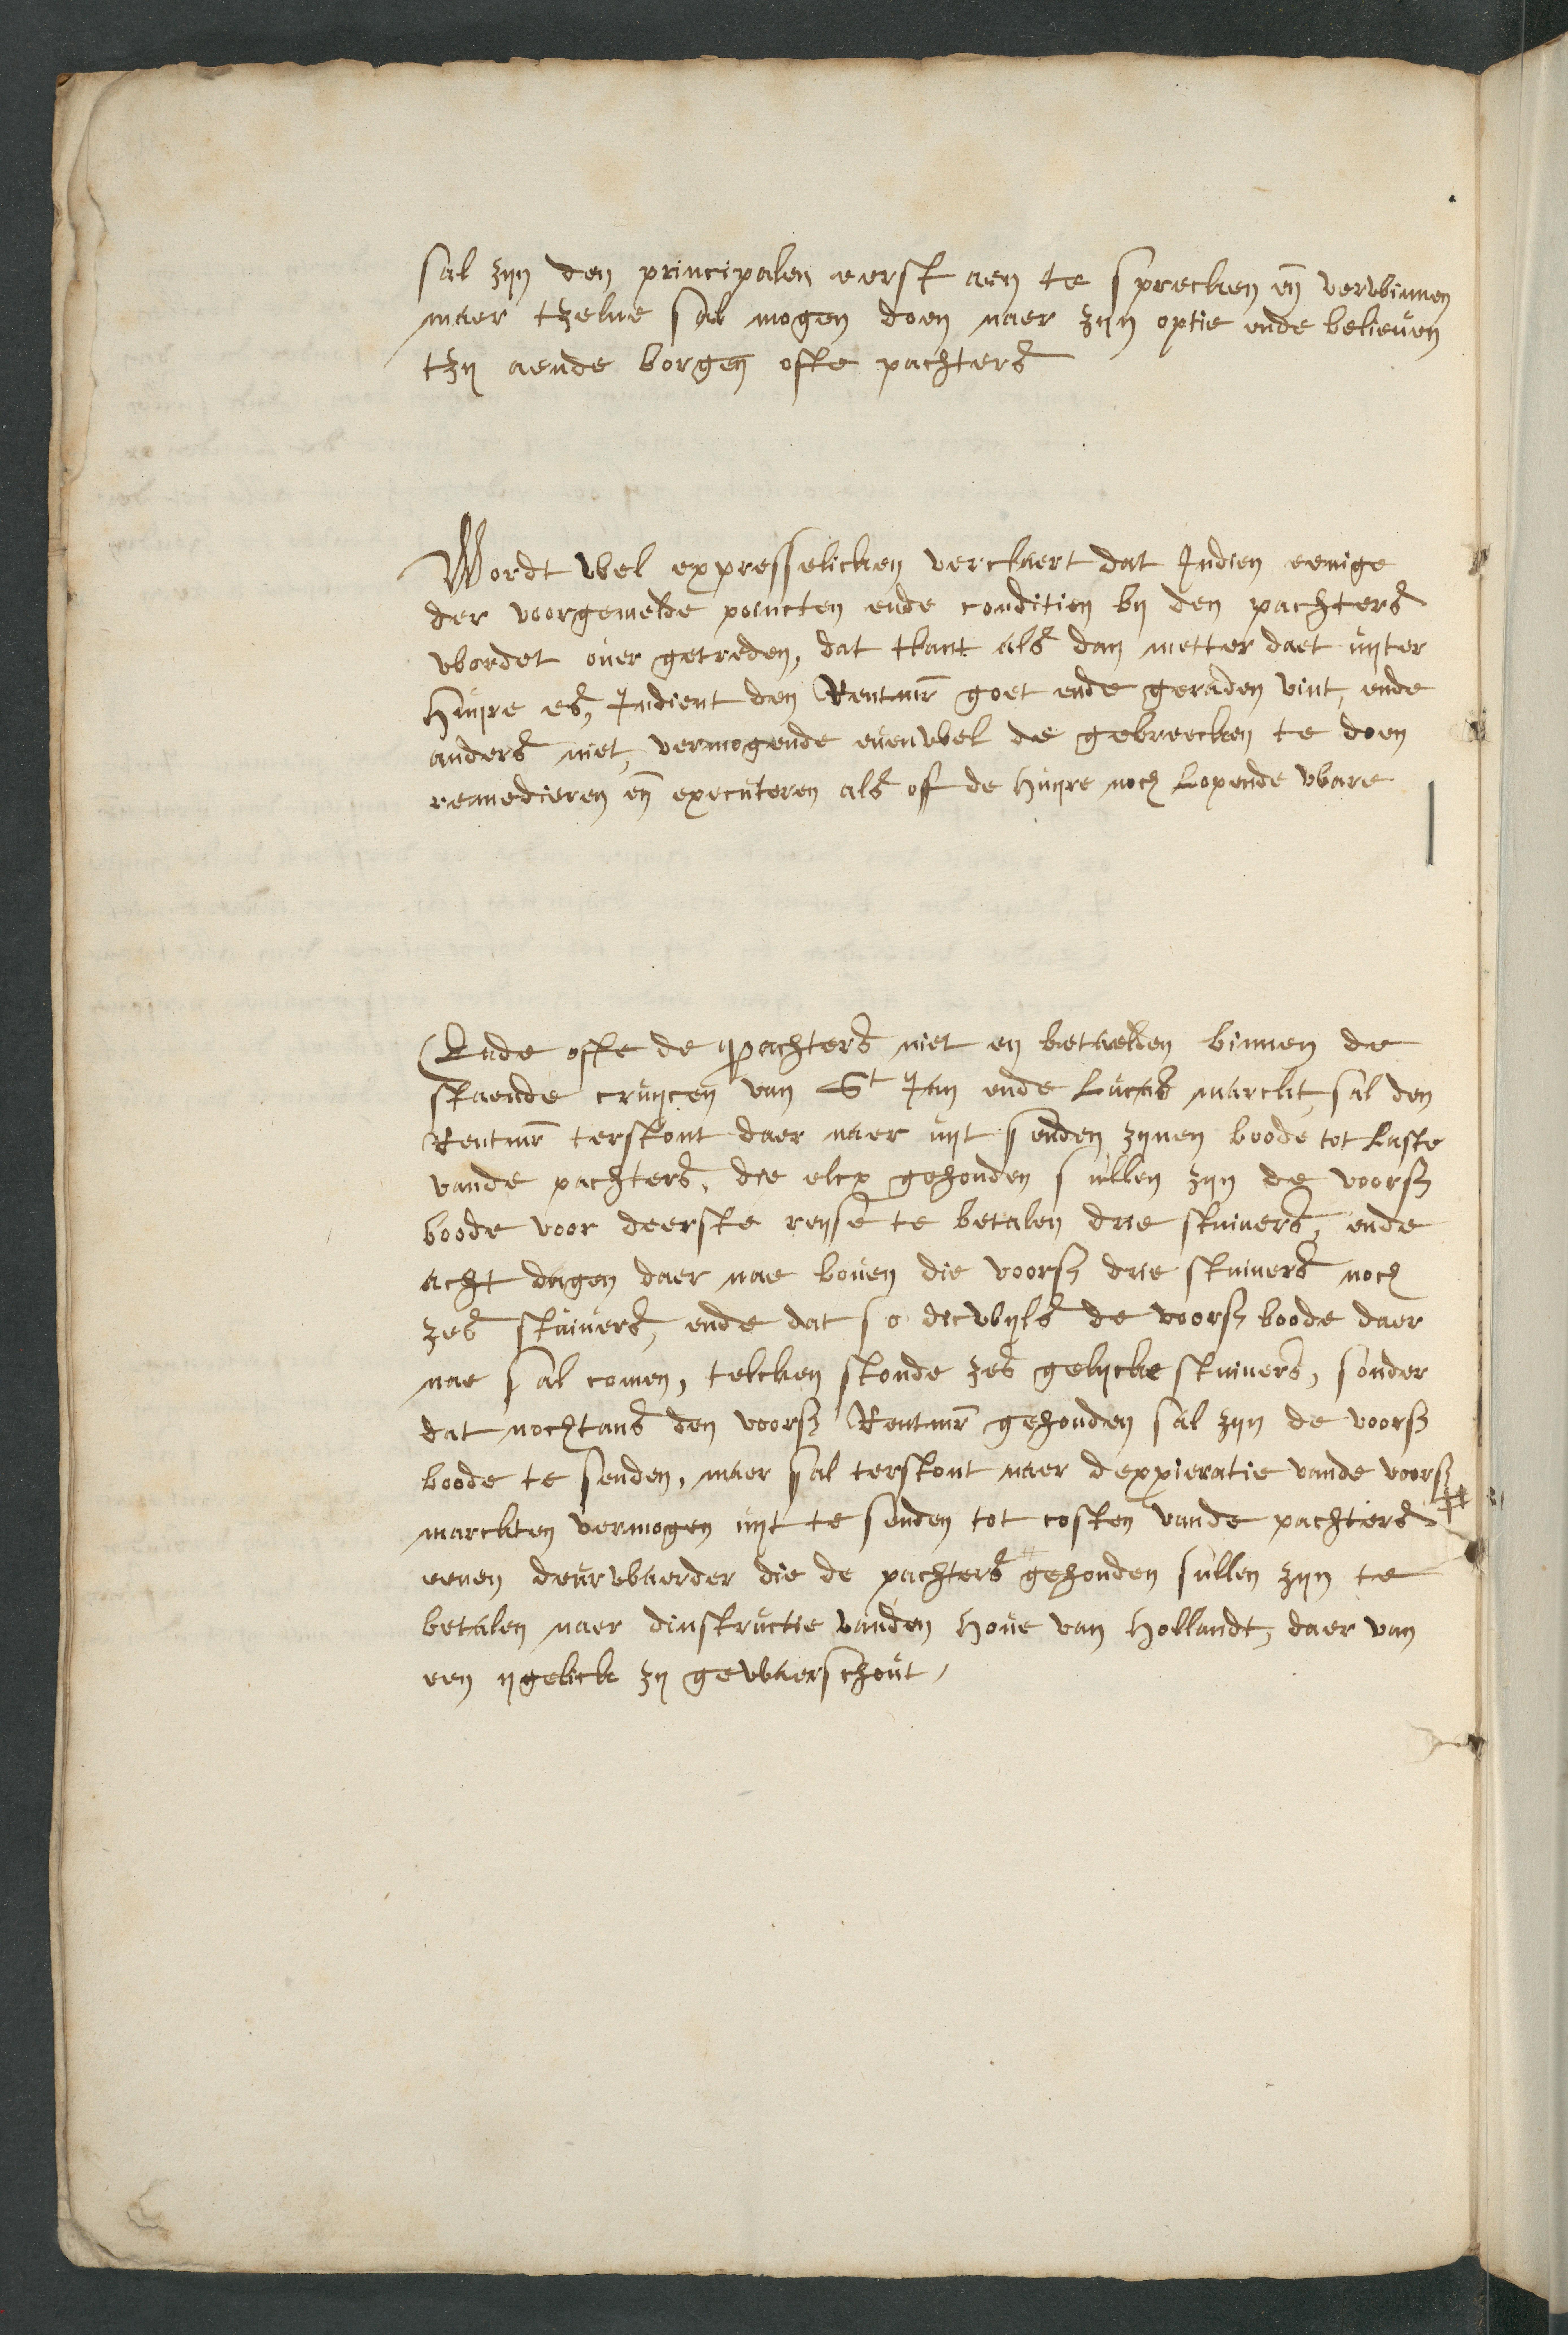 sal zijn den principalen eerst aen te sprecken en̄ verwinnen
maer tzelue sal mogen doen naer zijn optie ende belieuen
tzij aende borgen ofte pachters
Wordt wel expresselicken verclaert dat Indien eenige
der voorgemelde poincten ende conditien bij den pachters
wordet ouer getreden, dat tlant als dan metter daet uijter
huijre es, Indient den Rentmr goet ende geraden vint, ende
anders niet, vermogende euenwel de gebreecken te doen
remedieren en̄ executeren als off de huijre noch Lopende ware
Ende ofte de pachters niet en betaelden binnen de
staende cruijcen van St Jan ende Lucas marckt, sal den
Rentmr terstont daer naer uijt senden zijnen boode tot Laste
vande pachters, die elcx gehouden sullen zijn de voorsz
boode voor deerste reijse te betalen drie stuiuers, ende
acht dagen daer nae bouen die voorsz drie stuiuers noch
zes stuiuers, ende dat so dicwijls de voorsz boode daer
nae sal comen, telcken stonde zes gelijcke stuiuers, sonder
dat nochtans den voorsz Rentmr gehouden sal zijn de voorsz
boode te senden, maer sal terstont naer dexpieratie vande voorsz
marckten vermogen uijt te senden tot costen vande pachters #
eenen deurwaerder die de pachters gehouden sullen zijn te
betalen naer dinstructie vanden houe van Hollandt, daer van
een ijgelick zij gewaerschout,